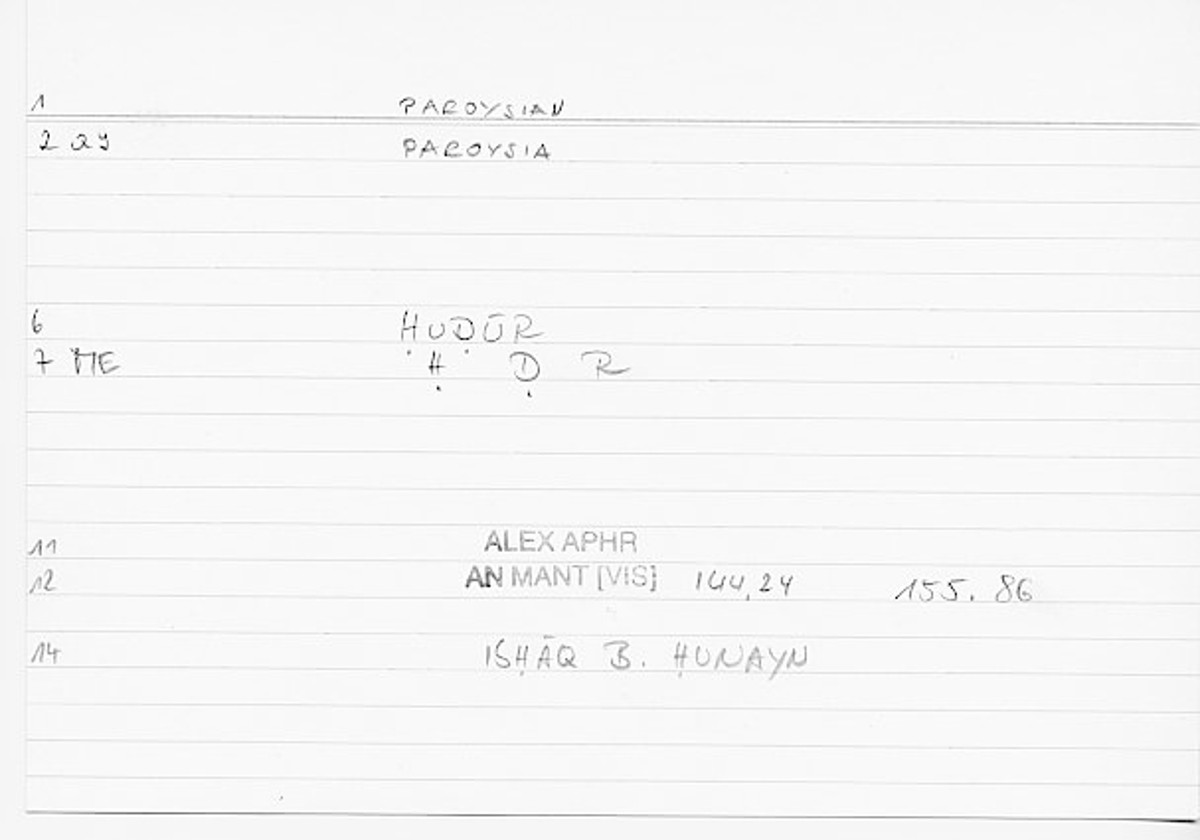 1 PAROYSIAN
2 QY PAROYSIA
6 ḤUḌŪR
7 ME Ḥ Ḍ R
11 ALEX APHR
12 AN MANT [VIS] 144,24 155. 86
14 ISḤĀQ B. ḤUNAYN